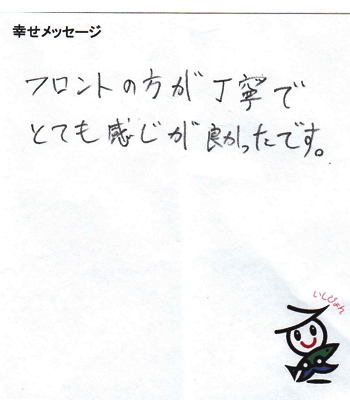 幸せメッセージ
フロントの方が丁寧で
とても感じが良かったです。
いしぴょん